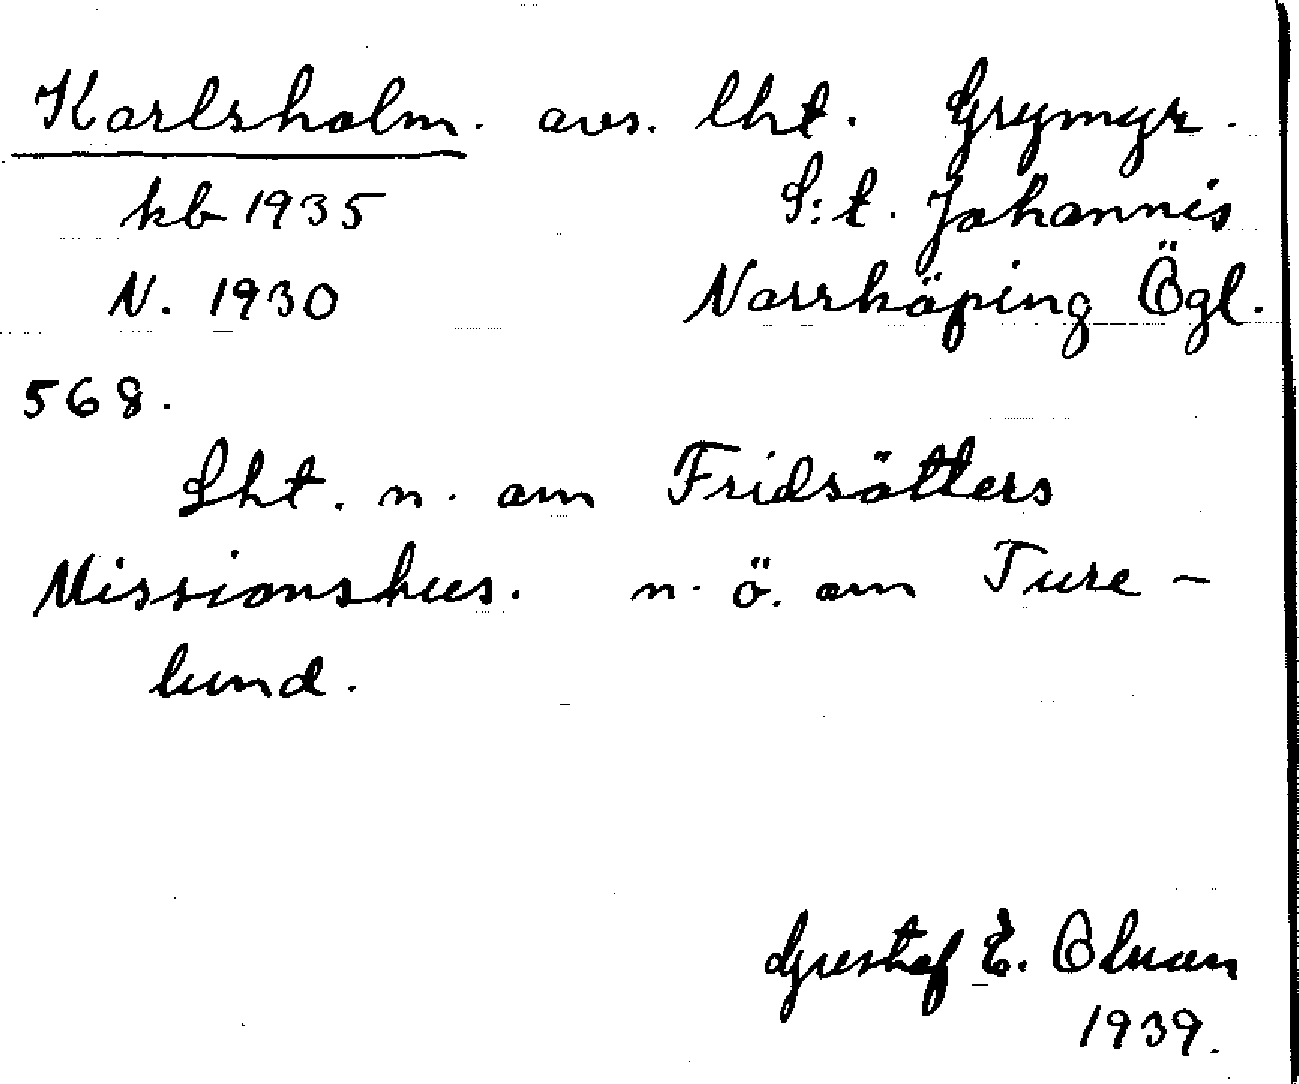 Karlsholm. avs. lht. Grymyr.
kb 1935 S:t. Johannis
N. 1930 Norrköping Ögl.
568.
Lht. n. om Fridsätters
Missionshus. n. ö. om Ture-
lund.
Gustaf E. Olman
1939.